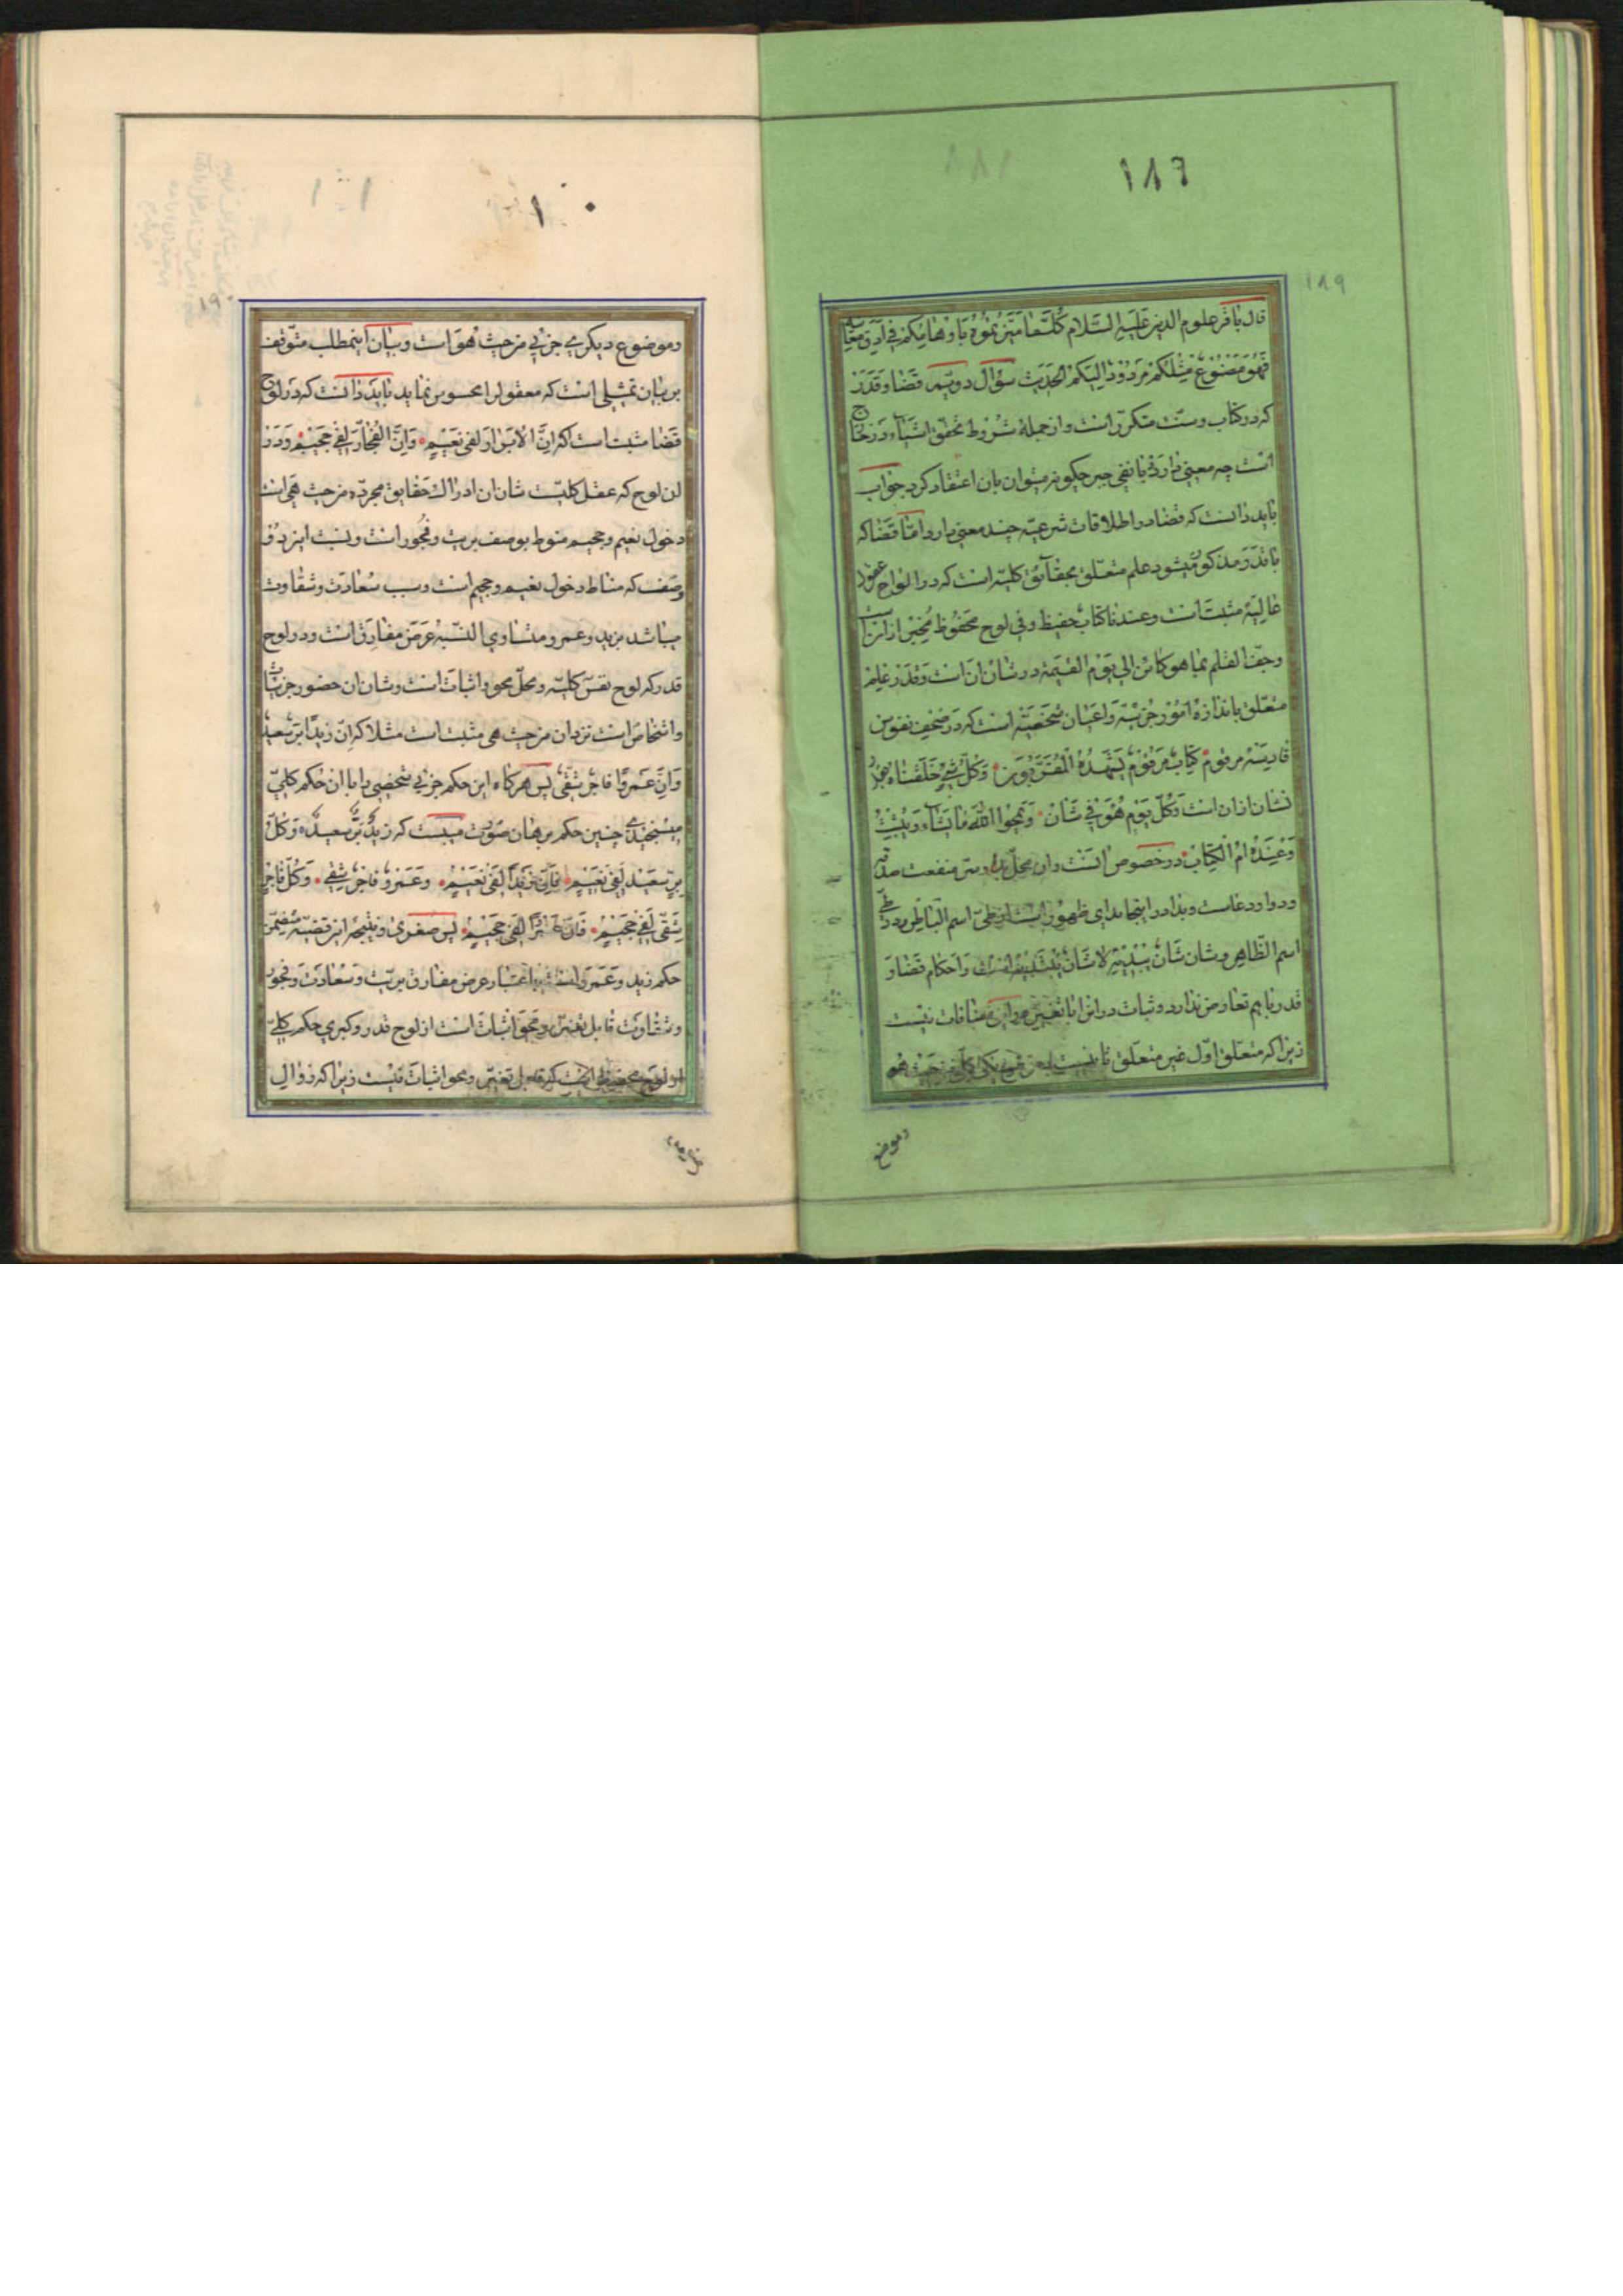 ۱۸۶
۱۸۹
قال باقر علوم الدین علیه السلام کلما میزتموه باوهامکم فی ادق معانیه
فهو مصنوع مثلکم مردود الیکم الحدیث سؤال دویم قضا و قدر
که در کتاب و سنت متکرر است و از جمله شروط تحقق اشیاء در خارج
است چه معنی دارد با نفی جبر چکونه میتوان بان اعتقاد کرد جواب
باید دانست که قضا در اطلاقات شرعیه چند معنی دارد اما قضا که
با قدر مذکور میشود علم متعلق بحقآئق کلیه است که در الواح عقول
عالیه مثبت است وعندنا کتاب حفیظ وفی لوح محفوظ مخبر از انست
وجف القلم بما هو کائن الی یوم القیمة در شان ان است وقدر علم
متعلق باندازه امور جزئیه واعیان شخصیه است که در صحف نفوس
قادسیه مرقوم کتاب مرقوم یشهده المقربون وکل شیء خلقناه بقدر
نشان ازان است وکل یوم هو فی شان ویمحوا الله ما یشاء ویثبت
وعنده ام الکتاب در خصوص انست وان محل بدا وسر منفعت صدقه
ودوا ودعاست وبدا در اینجا بدای ظهور است از طی اسم الباطن در طی
اسم الظاهر وشان شان یبدیه لا شان یبتدیه است واحکام قضا و
قدر با هم تعارض ندارد وثبات در این با تغییر در ان منافات نیست
زیرا که متعلق اول غیر متعلق ثانیست یعنی موضوع یکی کلی من حیث هو
وموضع
۱۰
۱۹۰
وموضوع دیکری جزئی من حیث هو است وبیان اینمطلب متوقف
بر بیان تمثیلی است که معقول را محسوس نماید باید دانست که در لوح
قضا مثبت است که ان الابرار لفی نعیم وان الفجار لفی جحیم ودر
ان لوح که عقل کلیست شان ان ادراک حقایق مجرده من حیث هی است
دخول نعیم وجحیم منوط بوصف بریت وفجور است ونسبت این دو
وصف که مناط دخول نعیم وجحیم است وسبب سعادت وشقاوت
میباشد بزید وعمرو متساوی النسبه عرض مفارق است ودر لوح
قدر که لوح نفس کلیه ومحل محو واثبات است وشان ان حضور جزئیات
واشخاص است نزد ان من حیث هی مثبت است مثلا که ان زیدا بر سعید
وان عمروا فاجر شقی پس هرکاه این حکم جزئی شخصی را با ان حکم کلی
میسنجیدی چنین حکم برهان صورت میبست که زید بر سعید وکل
بر سعید لفی نعیم فان زیدا لفی نعیم وعمرو فاجر شقی وکل فاجر
شقی لفی جحیم فان عمروا لفی جحیم پس صغری ونتیجه این قضیه متضمن
حکم زید وعمرو است باعتبار عرض مفارق بریت وسعادت وفجور
وشقاوت قابل تغییر ومحو اثبات است از لوح قدر وکبری حکم کلی
از لوح محفوظ است که قابل تغییر ومحو اثبات نیست زیرا که زوال